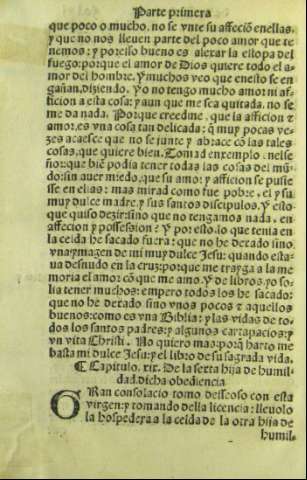 Parte primera
que poco o mucho, no se vnte su affeciõ enellas,
y que no nos lleuen parte del poco amor que te
nemos: y por esso bueno es alexar la estopa del
fuego: porque el amor de Dios quiere todo el a
mor del hombre. Y muchos veo que enesto se en
gañan, diziendo. Yo no tengo mucho amor ni af-
ficion a esta cosa: y aun que me sea quitada, no se
me da nada. Porque creedme, que la afficion z
amor, es vna cosa tan delicada: q̃ muy pocas ve
zes acaesce que no se junte y abrace cõ las tales
cosas, que quiere bien. Tomad enxemplo, nel se
ñor: que biẽ podia tener todas las cosas del mũ-
do: sin auer miedo, que su amor y afficion se pusie
sse en ellas: mas mirad como fue pobre, el y su
muy dulce madre, y sus santos discipulos. Y esto
que quiso dezir: sino que no tengamos nada, en
affecion y possession? Y por esto, lo que tenia en
la celda he sacado fuera: que no he dexado sino.
vna ymagen de mi muy dulce Jesu: quando esta-
ua desnudo en la cruz: porque me trayga a la me
moria el amor cõ que me amo. Y de libros, yo so
lia tener muchos: empero todos los he sacado:
que no he dexado sino vnos pocos z aquellos
buenos: como es vna Biblia: y las vidas de to-
dos los santos padres: y algunos cartapacios: y
vn vita Christi. No quiero mas: porq̃ harto me
basta mi dulce Jesu: y el libro de su sagrada vida.
¶ Capitulo. xix. De la sexta hija de humil
dad, dicha obediencia
GRan consolacio tomo desseoso con esta
virgen: y tomando della licencia: lleuolo
la hospedera a la celda de la otra hija de
humil-